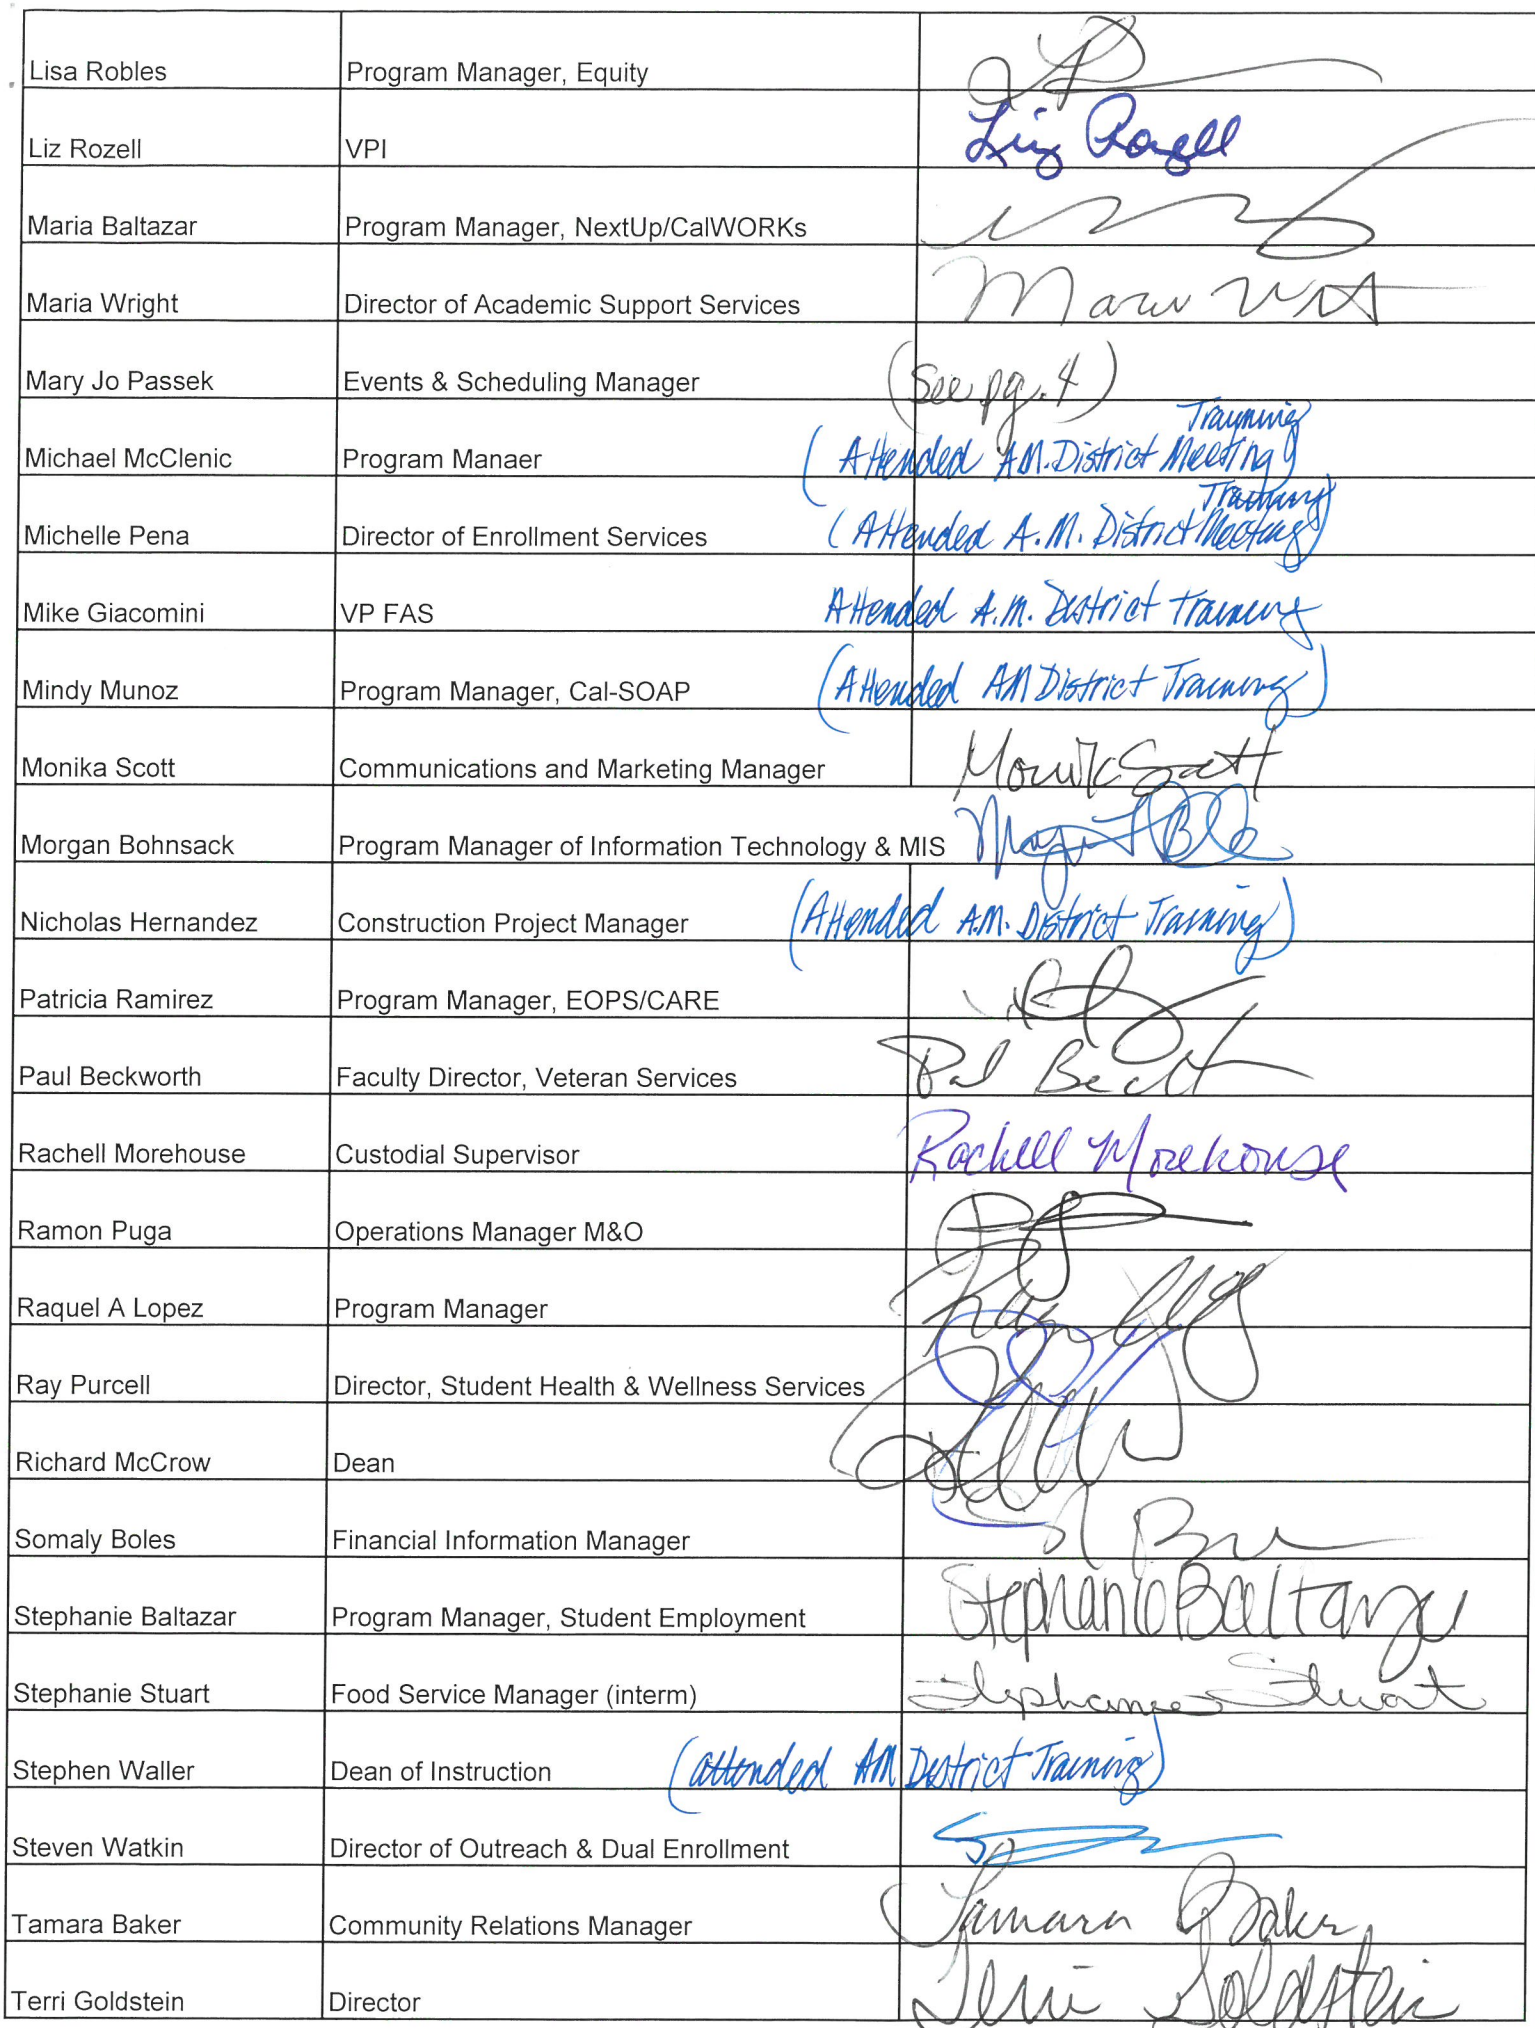 Lisa Robles Program Manager, Equity
Liz Rozell VPI Liz Rozell
Maria Baltazar Program Manager, NextUp/CalWORKs
Maria Wright Director of Academic Support Services Maria
Mary Jo Passek Events & Scheduling Manager (See pg. 4)
Training
Michael McClenic Program Manaer (Attended A.M. District Meeting)
Training
Michelle Pena Director of Enrollment Services (Attended A.M. District Meeting)
Mike Giacomini VP FAS Attended A.M. District Training
Mindy Munoz Program Manager, Cal-SOAP (Attended AM District Training)
Monika Scott Communications and Marketing Manager Monika Scott
Morgan Bohnsack Program Manager of Information Technology & MIS
Nicholas Hernandez Construction Project Manager (Attended A.M. District Training)
Patricia Ramirez Program Manager, EOPS/CARE
Paul Beckworth Faculty Director, Veteran Services
Rachell Morehouse Custodial Supervisor Rachell Morehouse
Ramon Puga Operations Manager M&O
Raquel A Lopez Program Manager
Ray Purcell Director, Student Health & Wellness Services
Richard McCrow Dean
Somaly Boles Financial Information Manager
Stephanie Baltazar Program Manager, Student Employment Stephanie Baltazar
Stephanie Stuart Food Service Manager (interm) Stephanie Stuart
Stephen Waller Dean of Instruction (attended AM District Training)
Steven Watkin Director of Outreach & Dual Enrollment
Tamara Baker Community Relations Manager Tamara Baker
Terri Goldstein Director Terri Goldstein